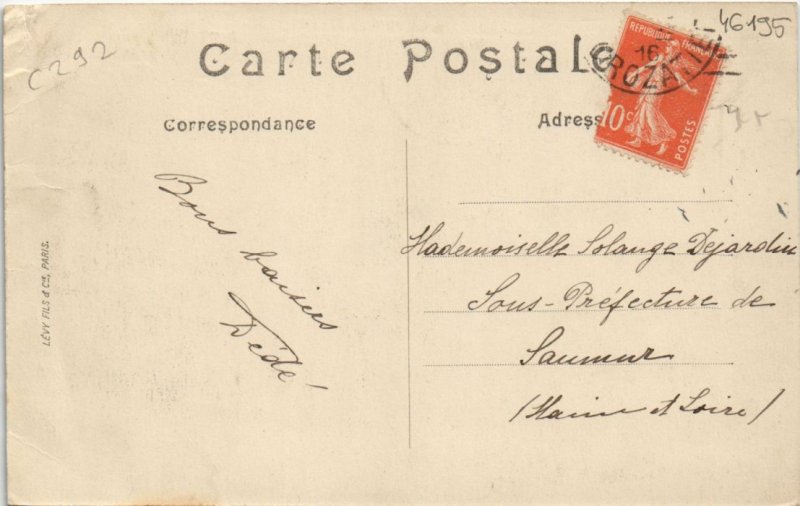 46195
C292
Carte Postale
REPUBLIQUE FRANÇAISE
16
ROZA
10c
POSTES
Correspondance
Adresse
Bons baisers
Dédé!
Mademoiselle Solange Dejardin
Sous-Préfecture de
Saumur
(Maine et Loire)
LÉVY FILS & Cie, PARIS.